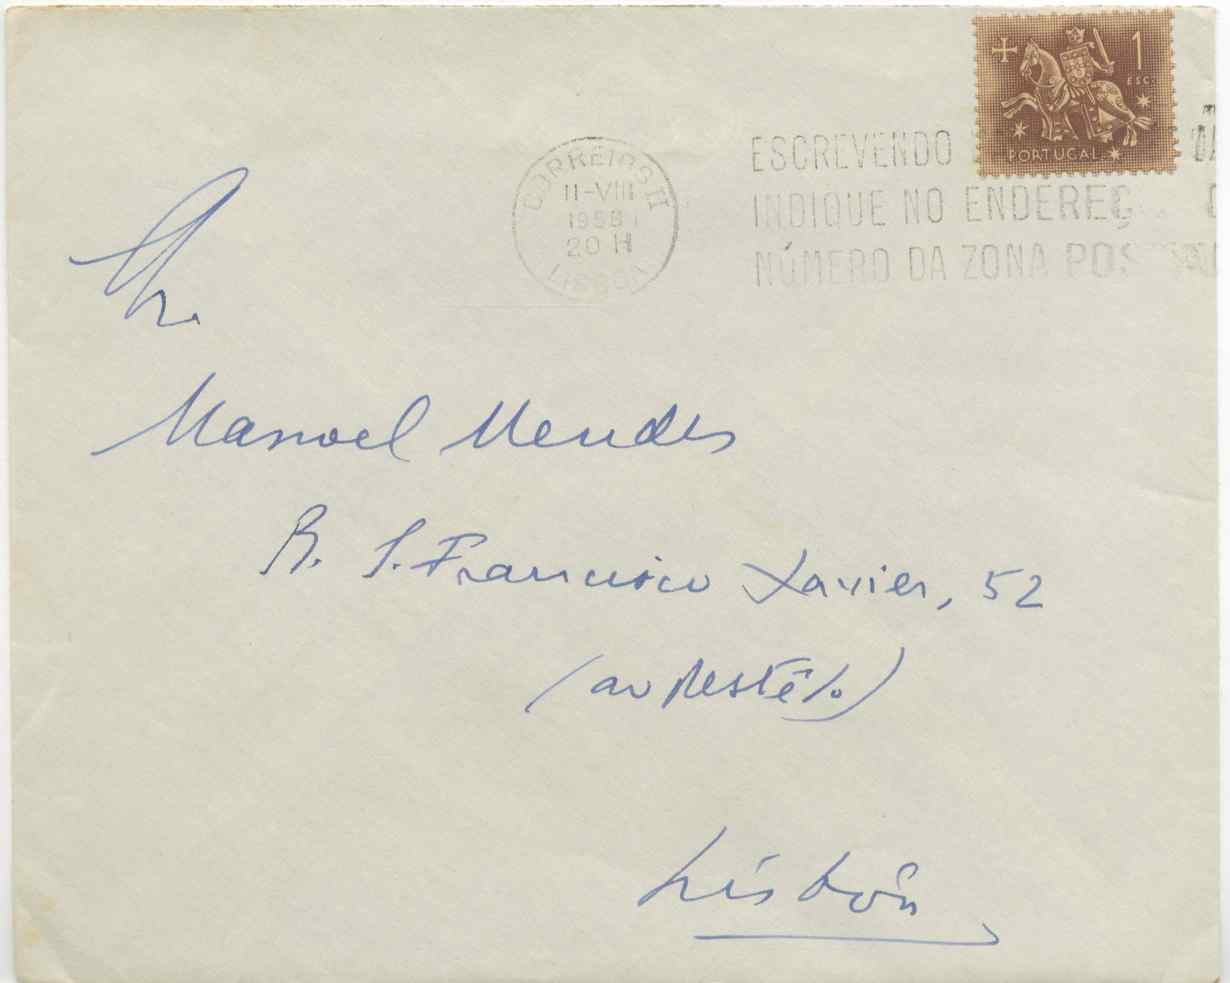 1
ESC.
PORTUGAL
CORREIOS II
11-VIII
1958
20 H
LISBOA
ESCREVENDO
INDIQUE NO ENDEREÇ
NÚMERO DA ZONA POS
Manoel Mendes
R. S. Francisco Xavier, 52
(ao Restêlo)
Lisbôa